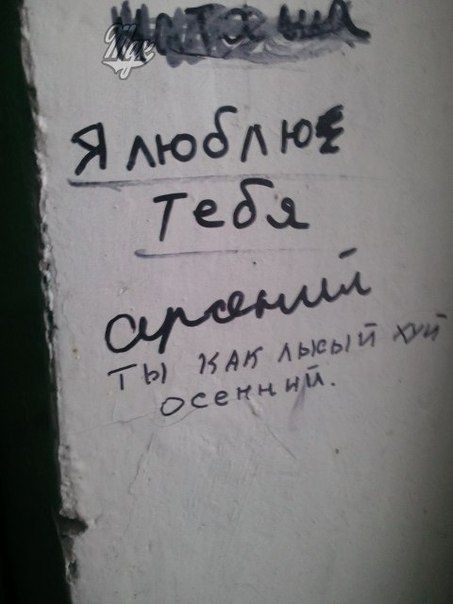 Наташа
Я люблю
тебя
арсений
ты как лысый хуй
осенний.